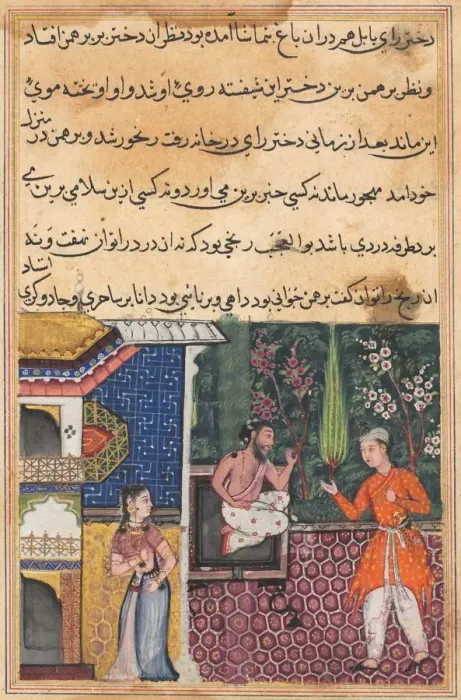 دختر رای بابل هم در ان باغ بتماشا آمده بود نظر ان دختر بر برهمن افتاد
ونظر برهمن برین دختر این شیفته روی او شد و او اوبخته موی
این ماند بعد از زمانی دختر رای در خانه رفت رنجور شد و برهمن در منزل
خود امد مهجور ماند نه کسی خبر برین می اورد و نه کسی ازین سلامی برین می
برد طرفه دردی باشد بوالعجب رنجی بود که نه ان درد را توان نهفت ونه
ان رنج را توان کفت برهمن خوانی بود داهی و بود دانا بر ساحری وجادوکری
استاد